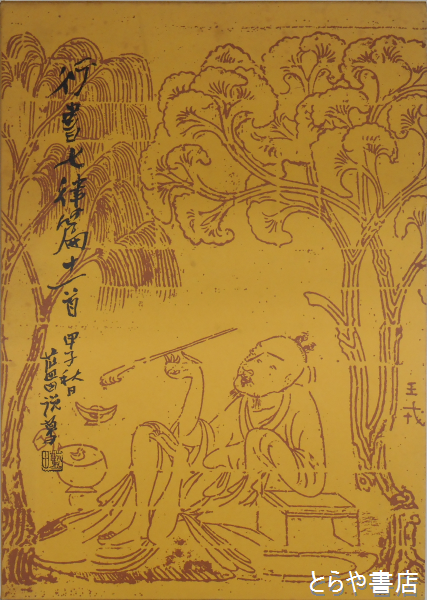 行書七律篇十一首
甲子秋日
王戎
とらや書店